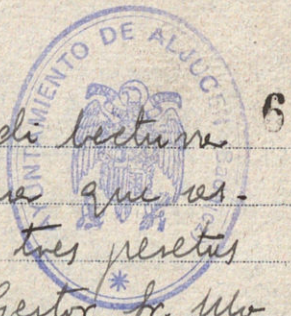 AYUNTAMIENTO DE ALJUCEN (Badajoz)
6
di lectura
que as-
tres pesetas
Gestor Sr. Mo